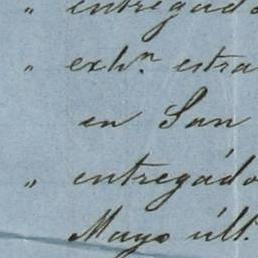 " entregado
" exh.n estra
en San
" entregádo
Mayo últ.